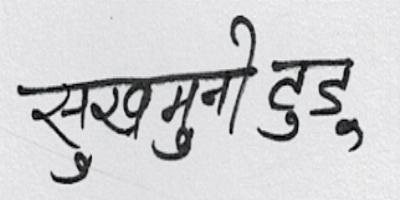 सुखमुनी टुडू